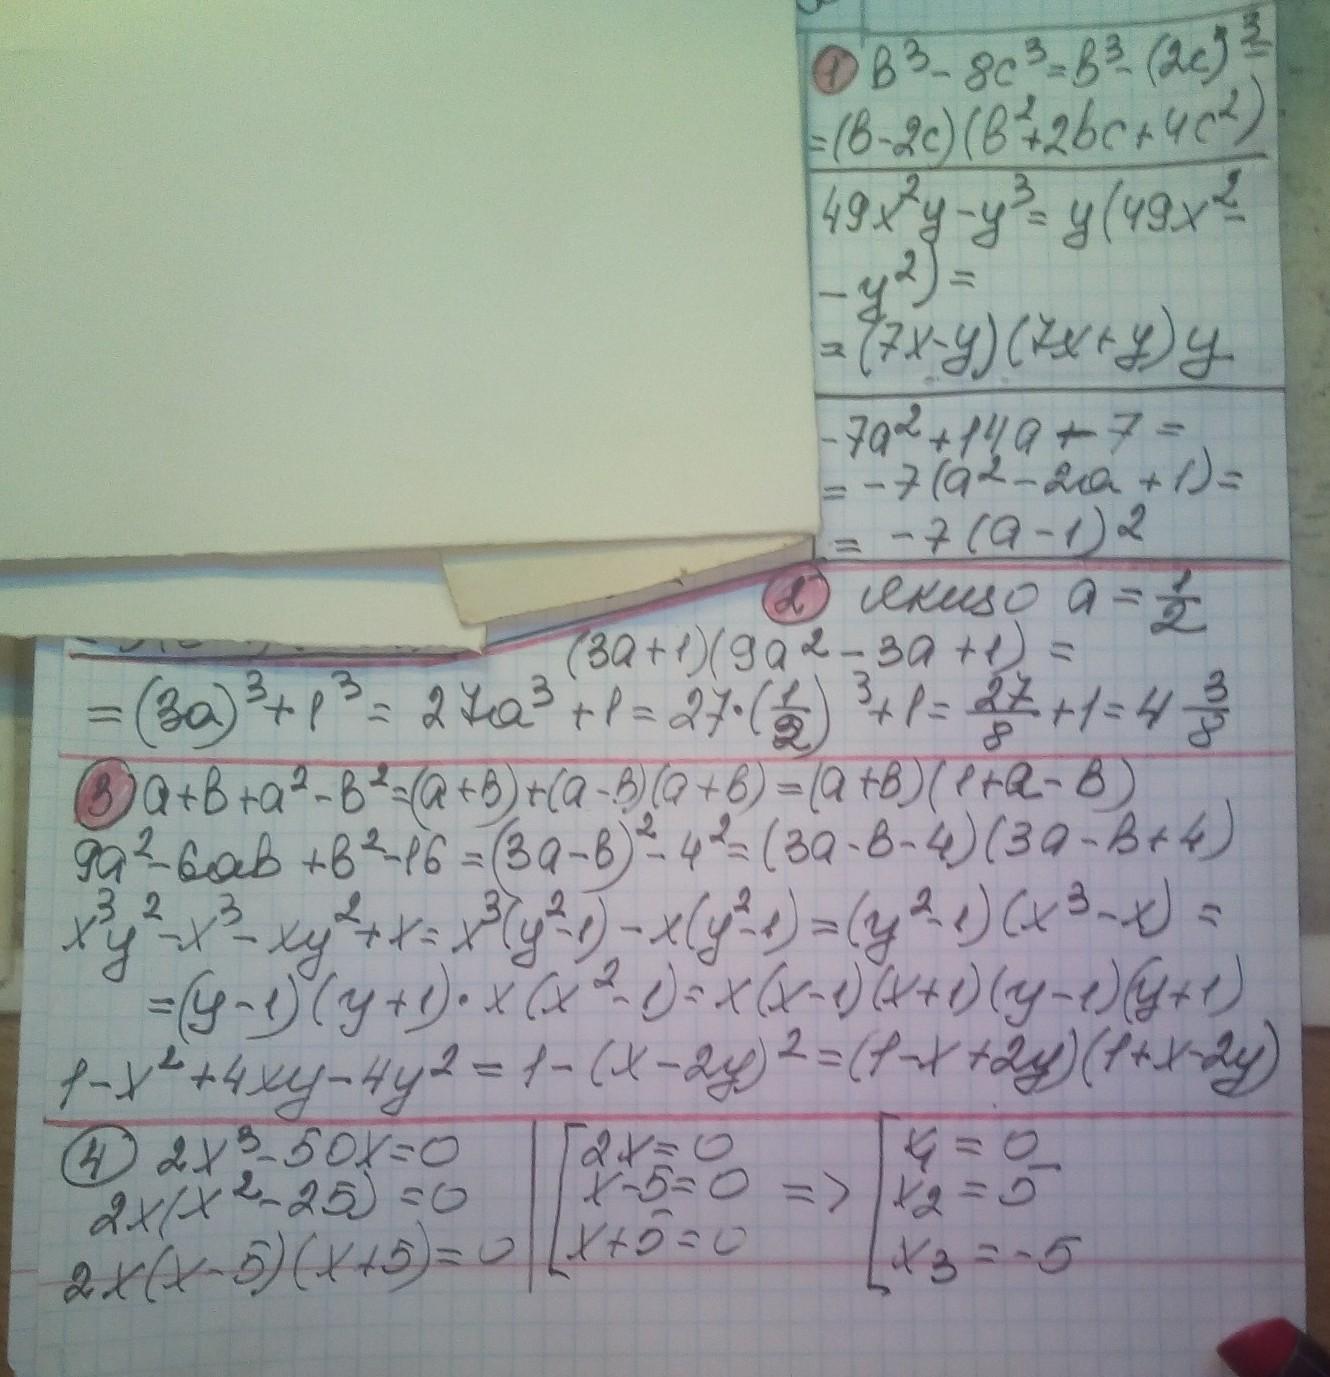 1 в³ - 8с³ = в³ - (2с)³ =
= (в - 2с) (в² + 2bc + 4с²)
49x²y - y³ = y(49x² -
- y²) =
= (7x - y) (7x + y) y
-7a² + 14a - 7 =
= -7(a² - 2a + 1) =
= -7(a - 1)2
2 якщо a = 1/2
(3a + 1)(9a² - 3a + 1) =
= (3a)³ + 1³ = 27a³ + 1 = 27 · (1/2)³ + 1 = 27/8 + 1 = 4 3/8
3 a + в + a² - в² = (a + в) + (a - в)(a + в) = (a + в)(1 + a - в)
9a² - 6aв + в² - 16 = (3a - в)² - 4² = (3a - в - 4)(3a - в + 4)
x³y² - x³ - xy² + x = x³(y² - 1) - x(y² - 1) = (y² - 1)(x³ - x) =
= (y - 1)(y + 1) · x(x² - 1) = x(x - 1)(x + 1)(y - 1)(y + 1)
1 - x² + 4xy - 4y² = 1 - (x - 2y)² = (1 - x + 2y)(1 + x - 2y)
4 2x³ - 50x = 0
2x(x² - 25) = 0
2x(x - 5)(x + 5) = 0
[2x = 0
x - 5 = 0 =>
x + 5 = 0
[x₁ = 0
x₂ = 5
x₃ = -5